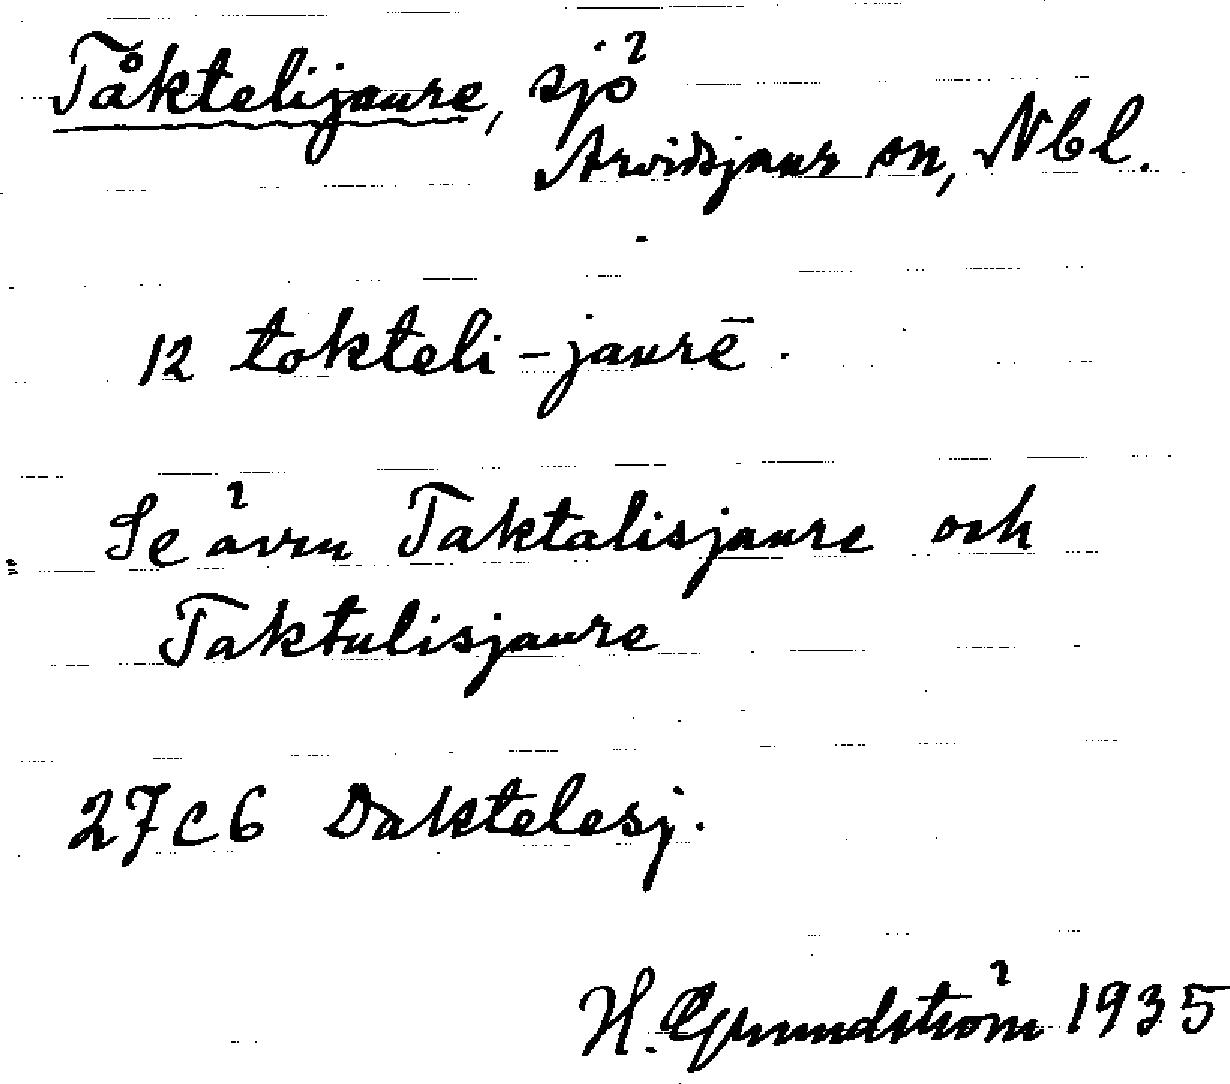 Tåktelijaure, sjö
Arvidsjaur sn, Nbl.
12 tokteli-jaurē.
Se även Taktalisjaure och
Taktulisjaure
27C6 Daktelesj.
H. Grundström 1935